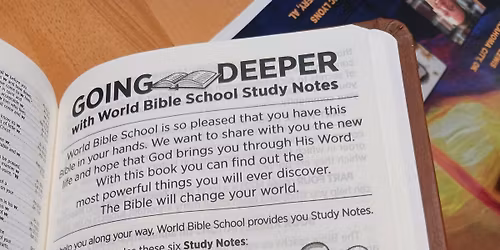 GOING DEEPER
with World Bible School Study Notes
World Bible School is so pleased that you have this
Bible in your hands. We want to share with you the new
life and hope that God brings you through His Word.
With this book you can find out the
most powerful things you will ever discover.
The Bible will change your world.
help you along your way, World Bible School provides you Study Notes.
these six Study Notes:
LYONS
ERY, AL
AHOMA CITY, OK